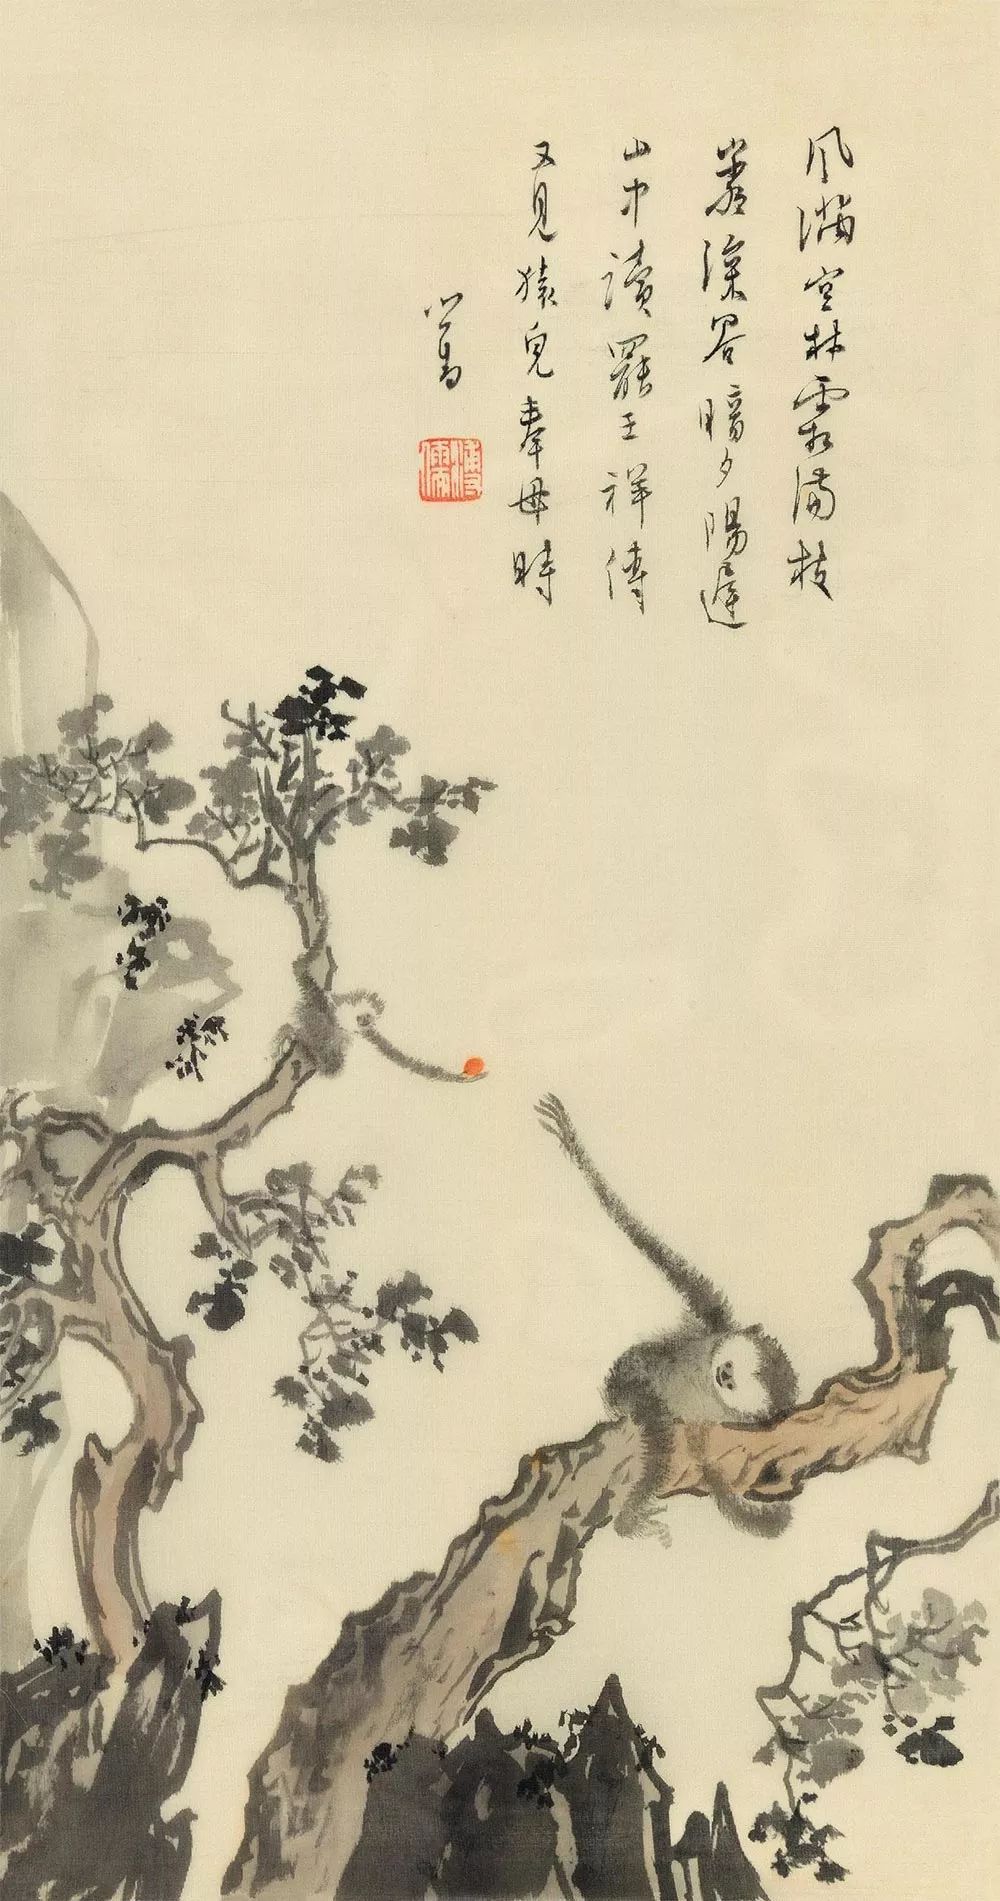 風滿空林霜滿枝
巖深谷暗夕陽遲
山中讀罷王祥傳
又見猿兒奉母時
心畬
溥儒